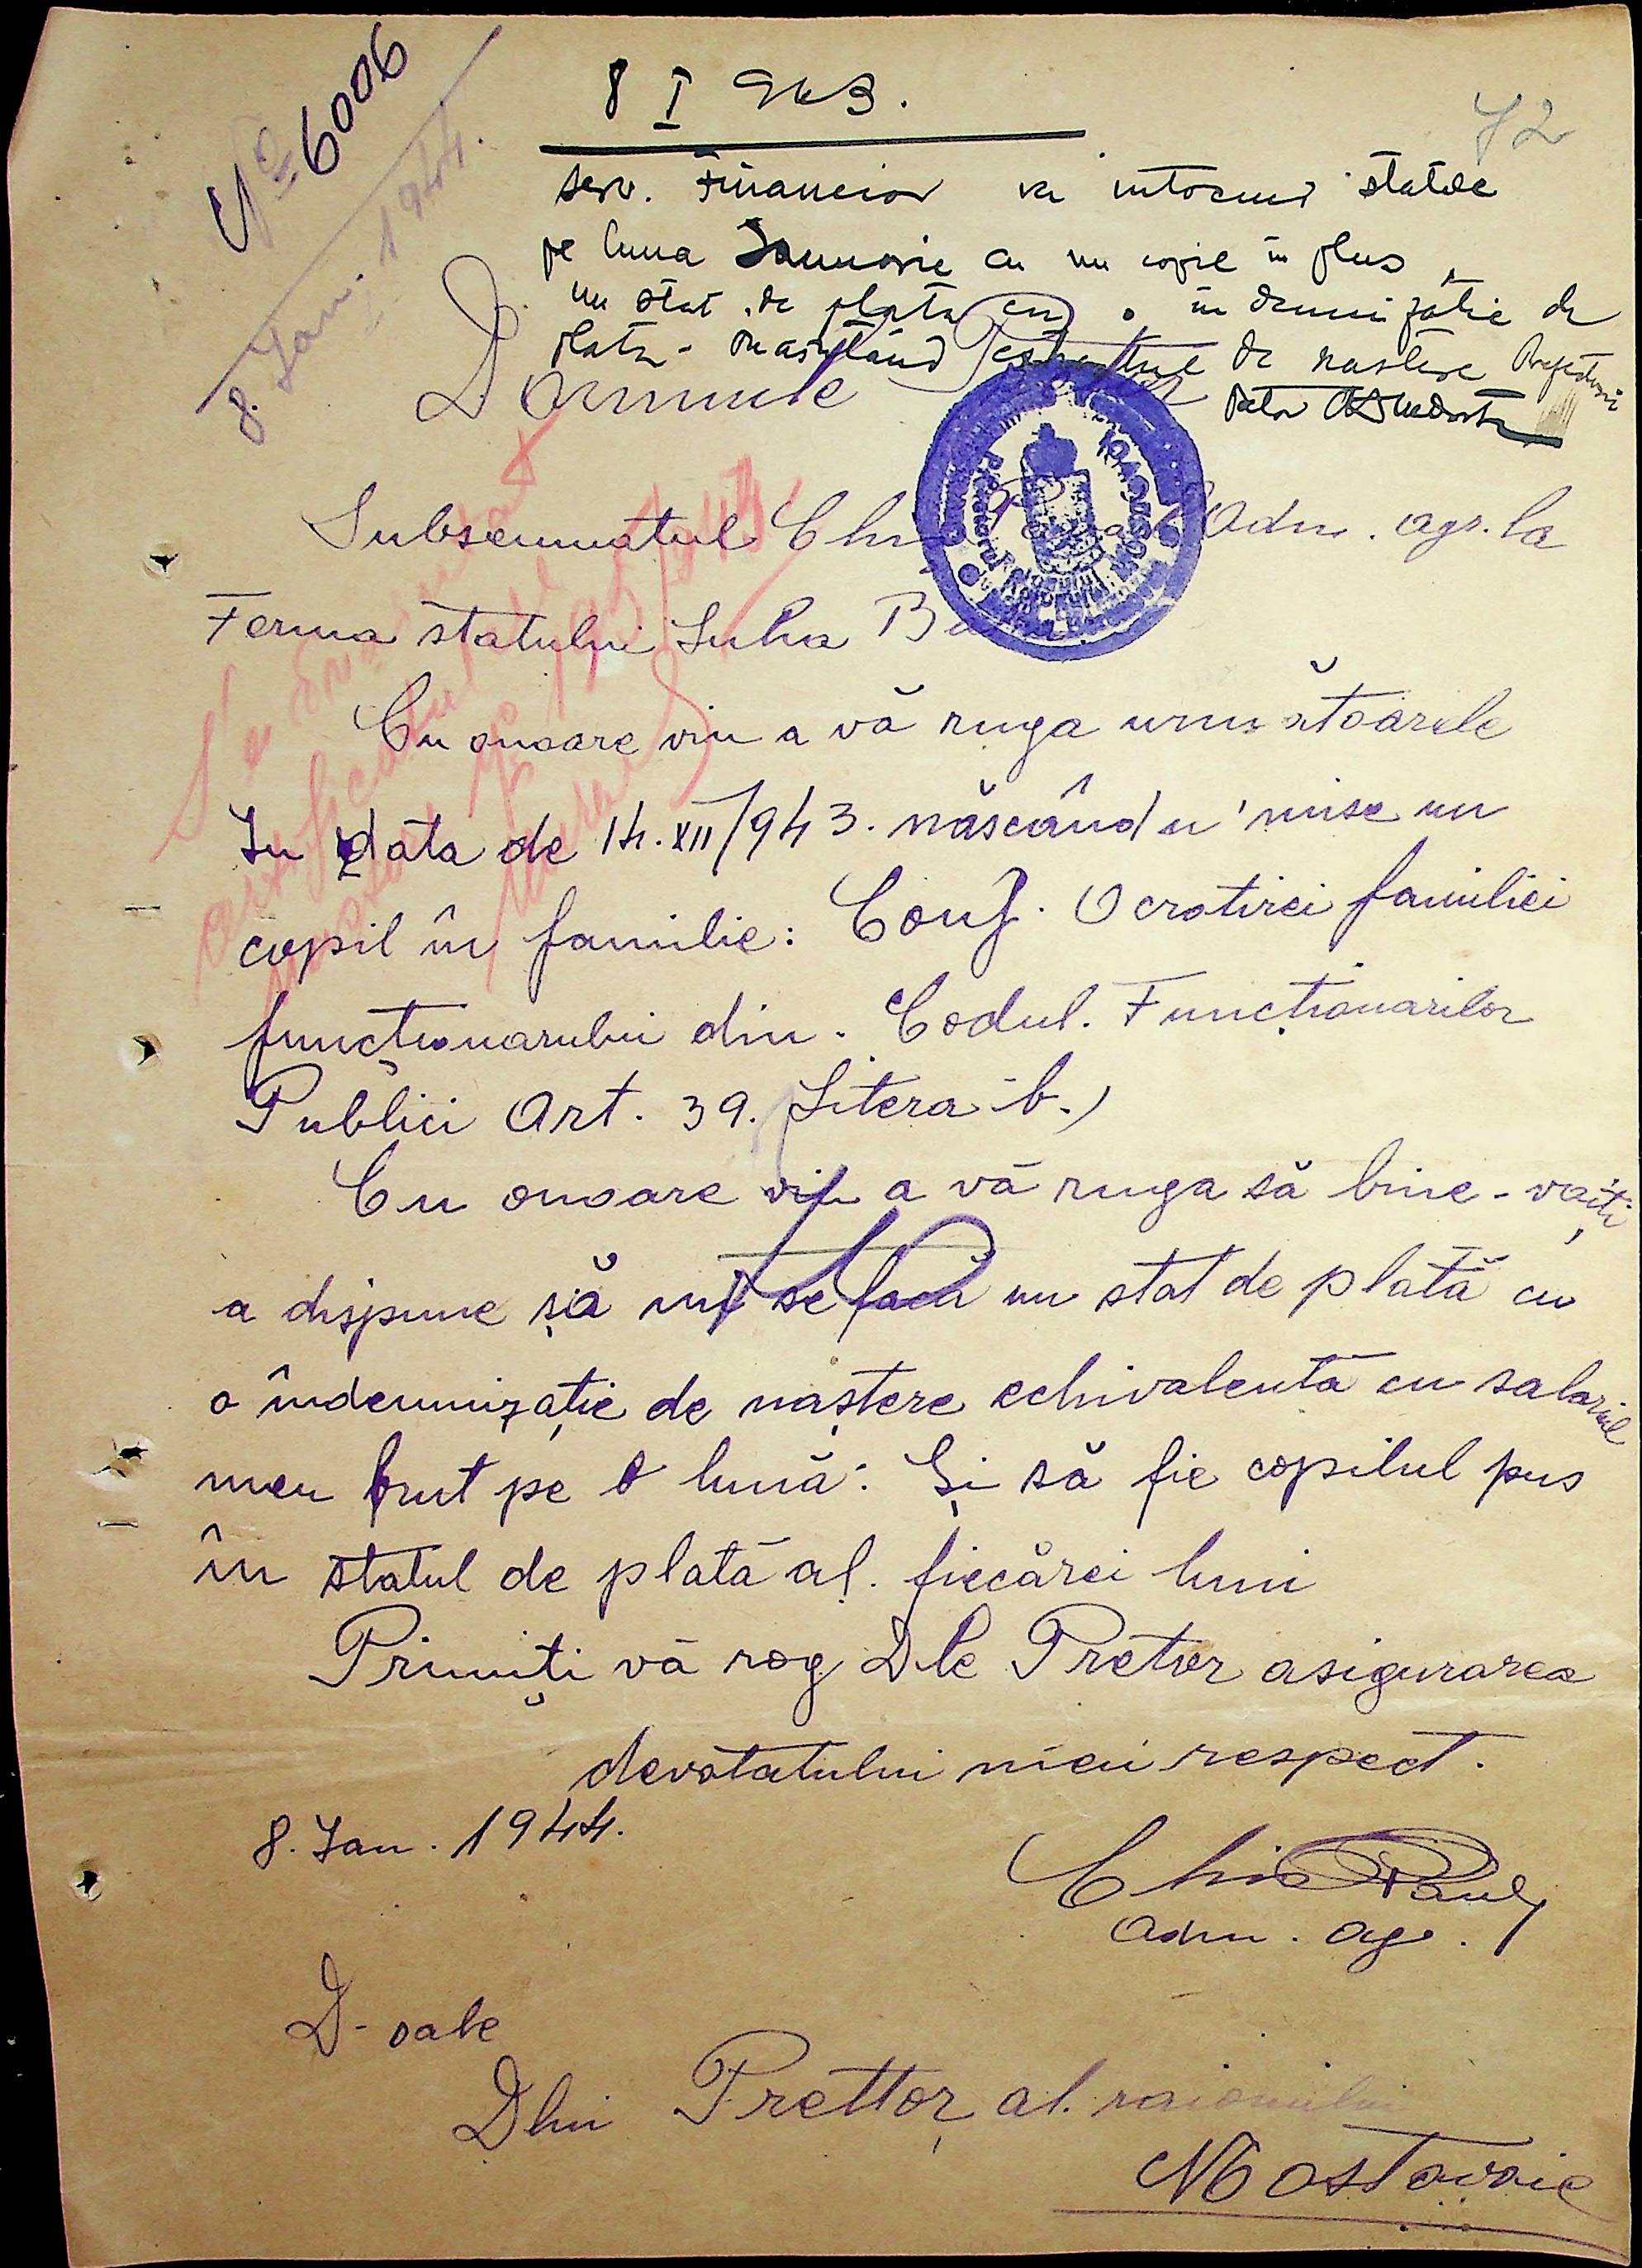 Nº 6006
8. Ian. 1944.
8 I 943.
72
serv. Financiar va intocmi statele
pe luna Ianuarie cu un copie in plus
un stat de plata cu o indemnizatie de
de nastere Prefecturii
Domnule Pretor
Subsemnatul Adm. agr. la
Ferma statului Suha
Cu onoare vin a vă ruga următoarele
In data de 14.XII/943. născându'mise un
copil în familie: Conf. Ocrotirei familiei
funcționarului din. Codul. Funcționarilor
Publici Art. 39. Litera b.)
Cu onoare vin a vă ruga să bine-voiți
a dispune șă mi se facă un stat de plată cu
o îndemnizație de naștere echivalentă cu salariul
meu brut pe o lună: Și să fie copilul pus
în statul de plată al. fiecărei luni
Primiți vă rog Dle Pretor asigurarea
devotatului meu respect.
8. Ian. 1944.
Paul
Adm. ag.
D-sale
Dlui Prettor al. raionului
Mostovoie